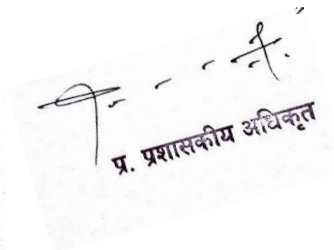 प्र. प्रशासकीय अधिकृत